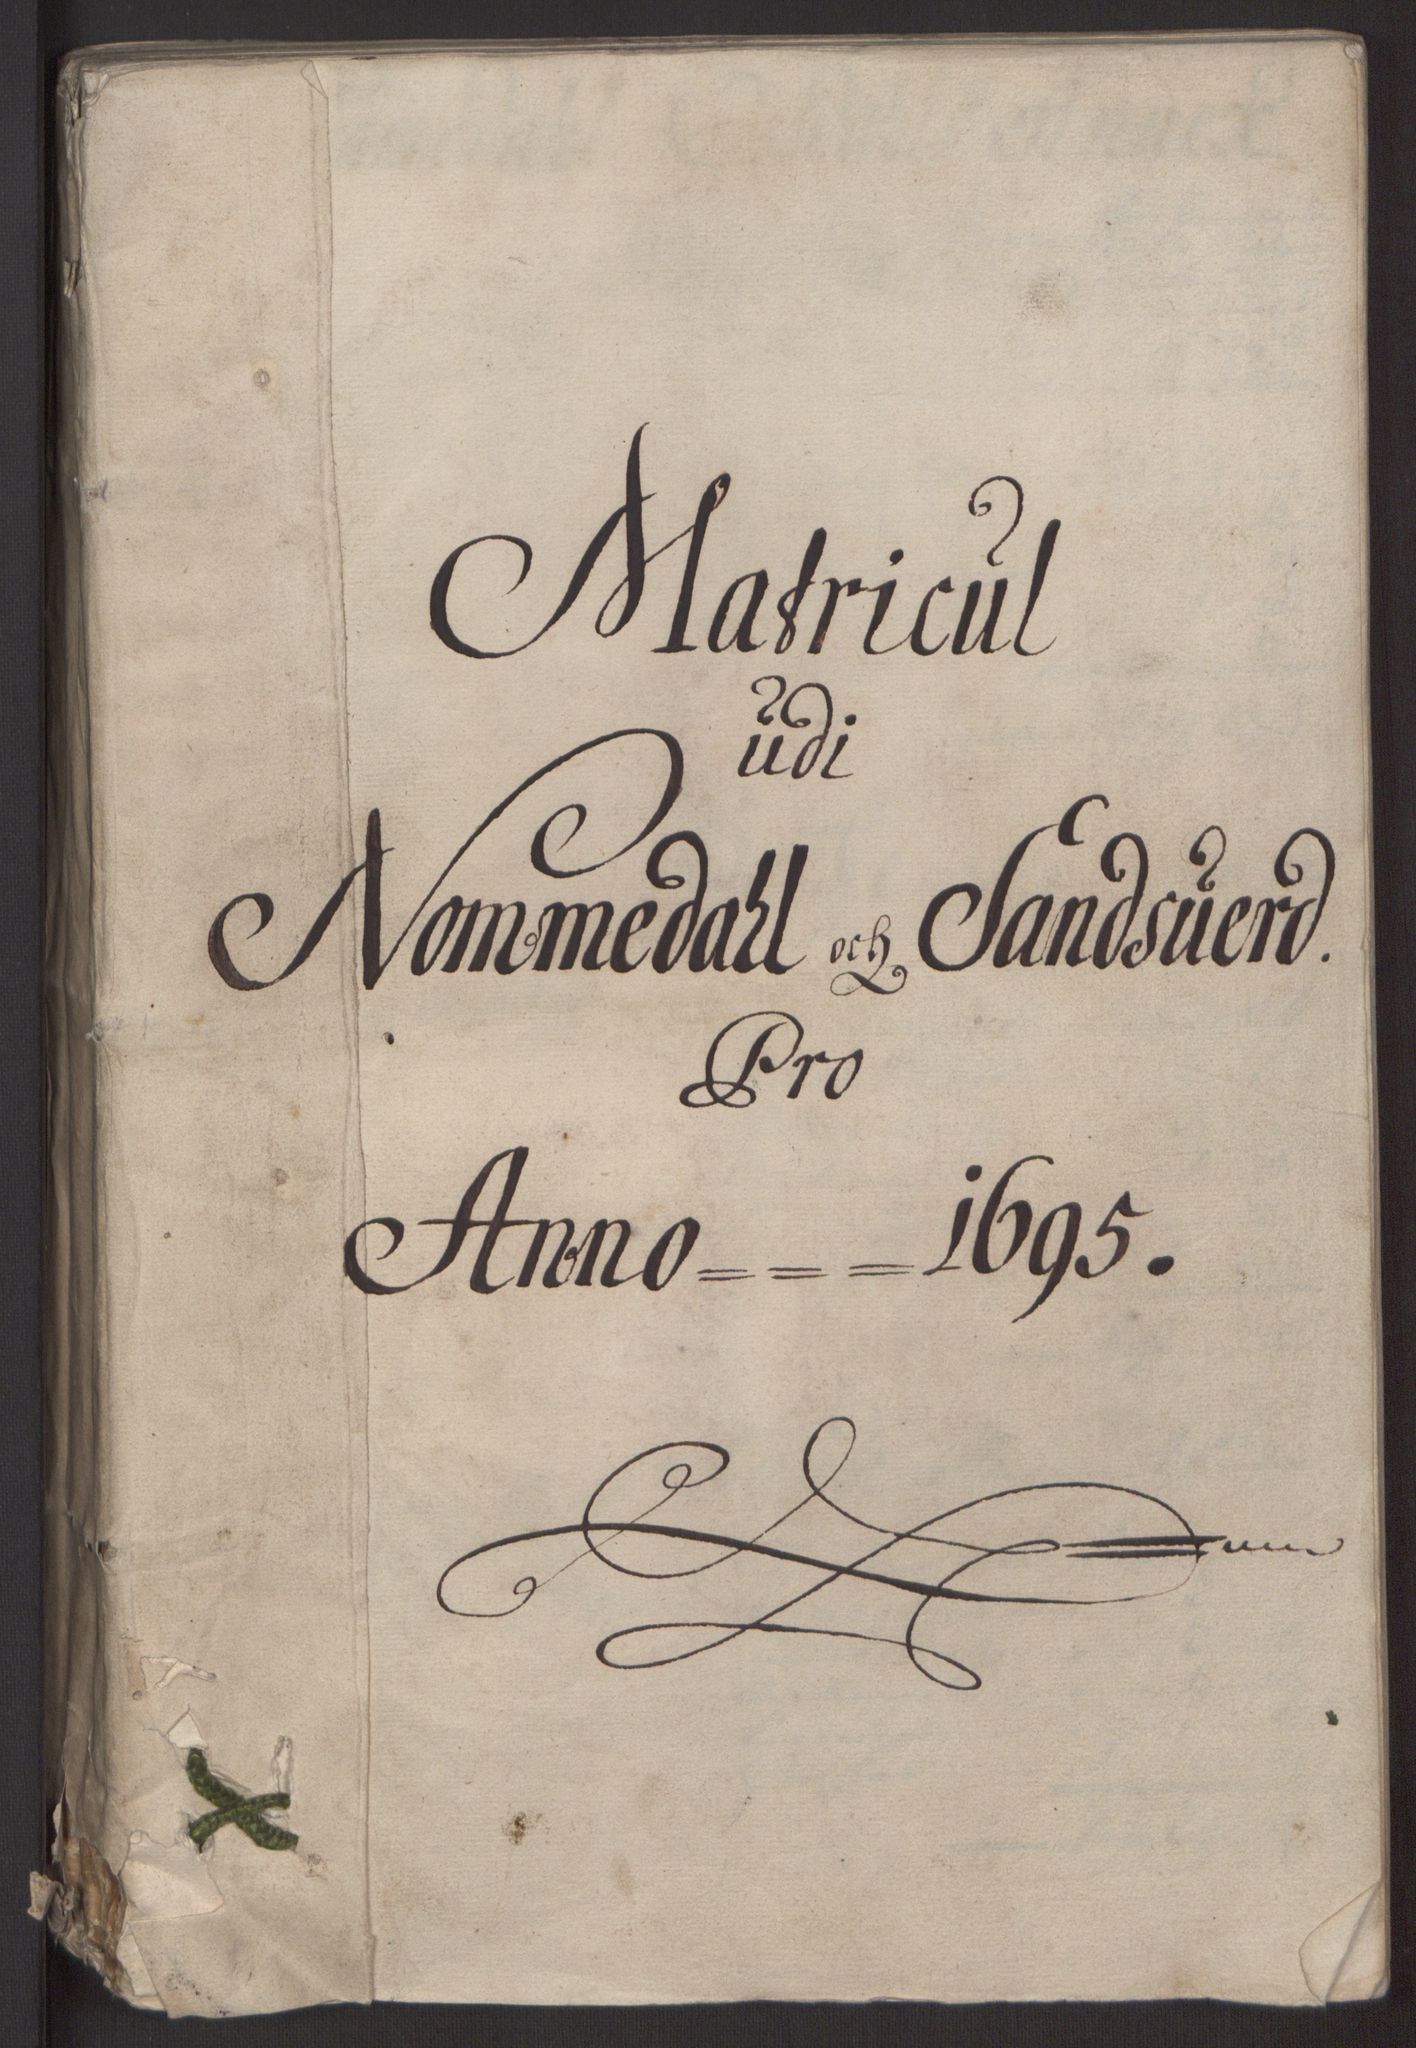 Matricul
udi
Nommedahl och Sandsuerd.
Pro
Anno - - - 1695.